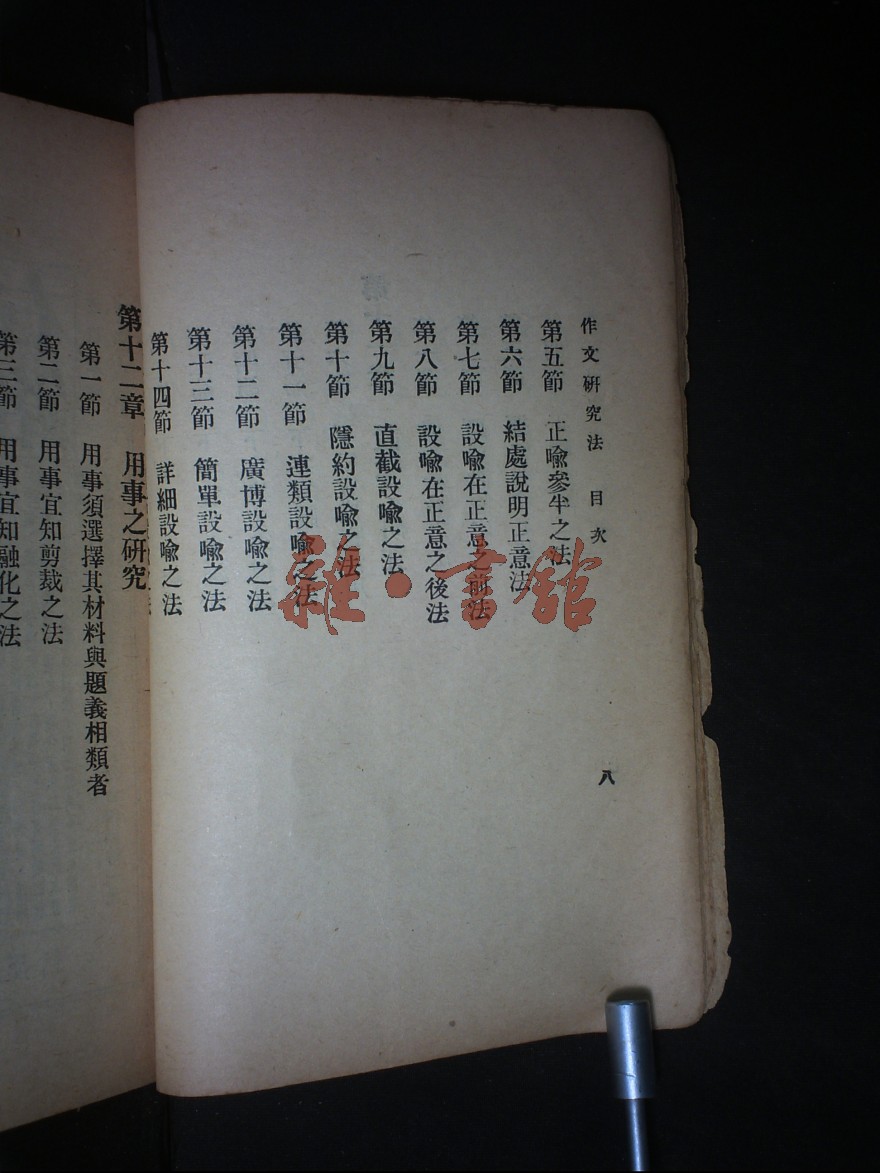 作文研究法 目次
八
第五節 正喻參半之法
第六節 結處說明正意法
第七節 設喻在正意之前法
第八節 設喻在正意之後法
第九節 直截設喻之法
第十節 隱約設喻之法
第十一節 連類設喻之法
第十二節 廣博設喻之法
第十三節 簡單設喻之法
第十四節 詳細設喻之法
第十二章 用事之研究
第一節 用事須選擇其材料與題義相類者
第二節 用事宜知剪裁之法
第三節 用事宜知融化之法
雜·書館